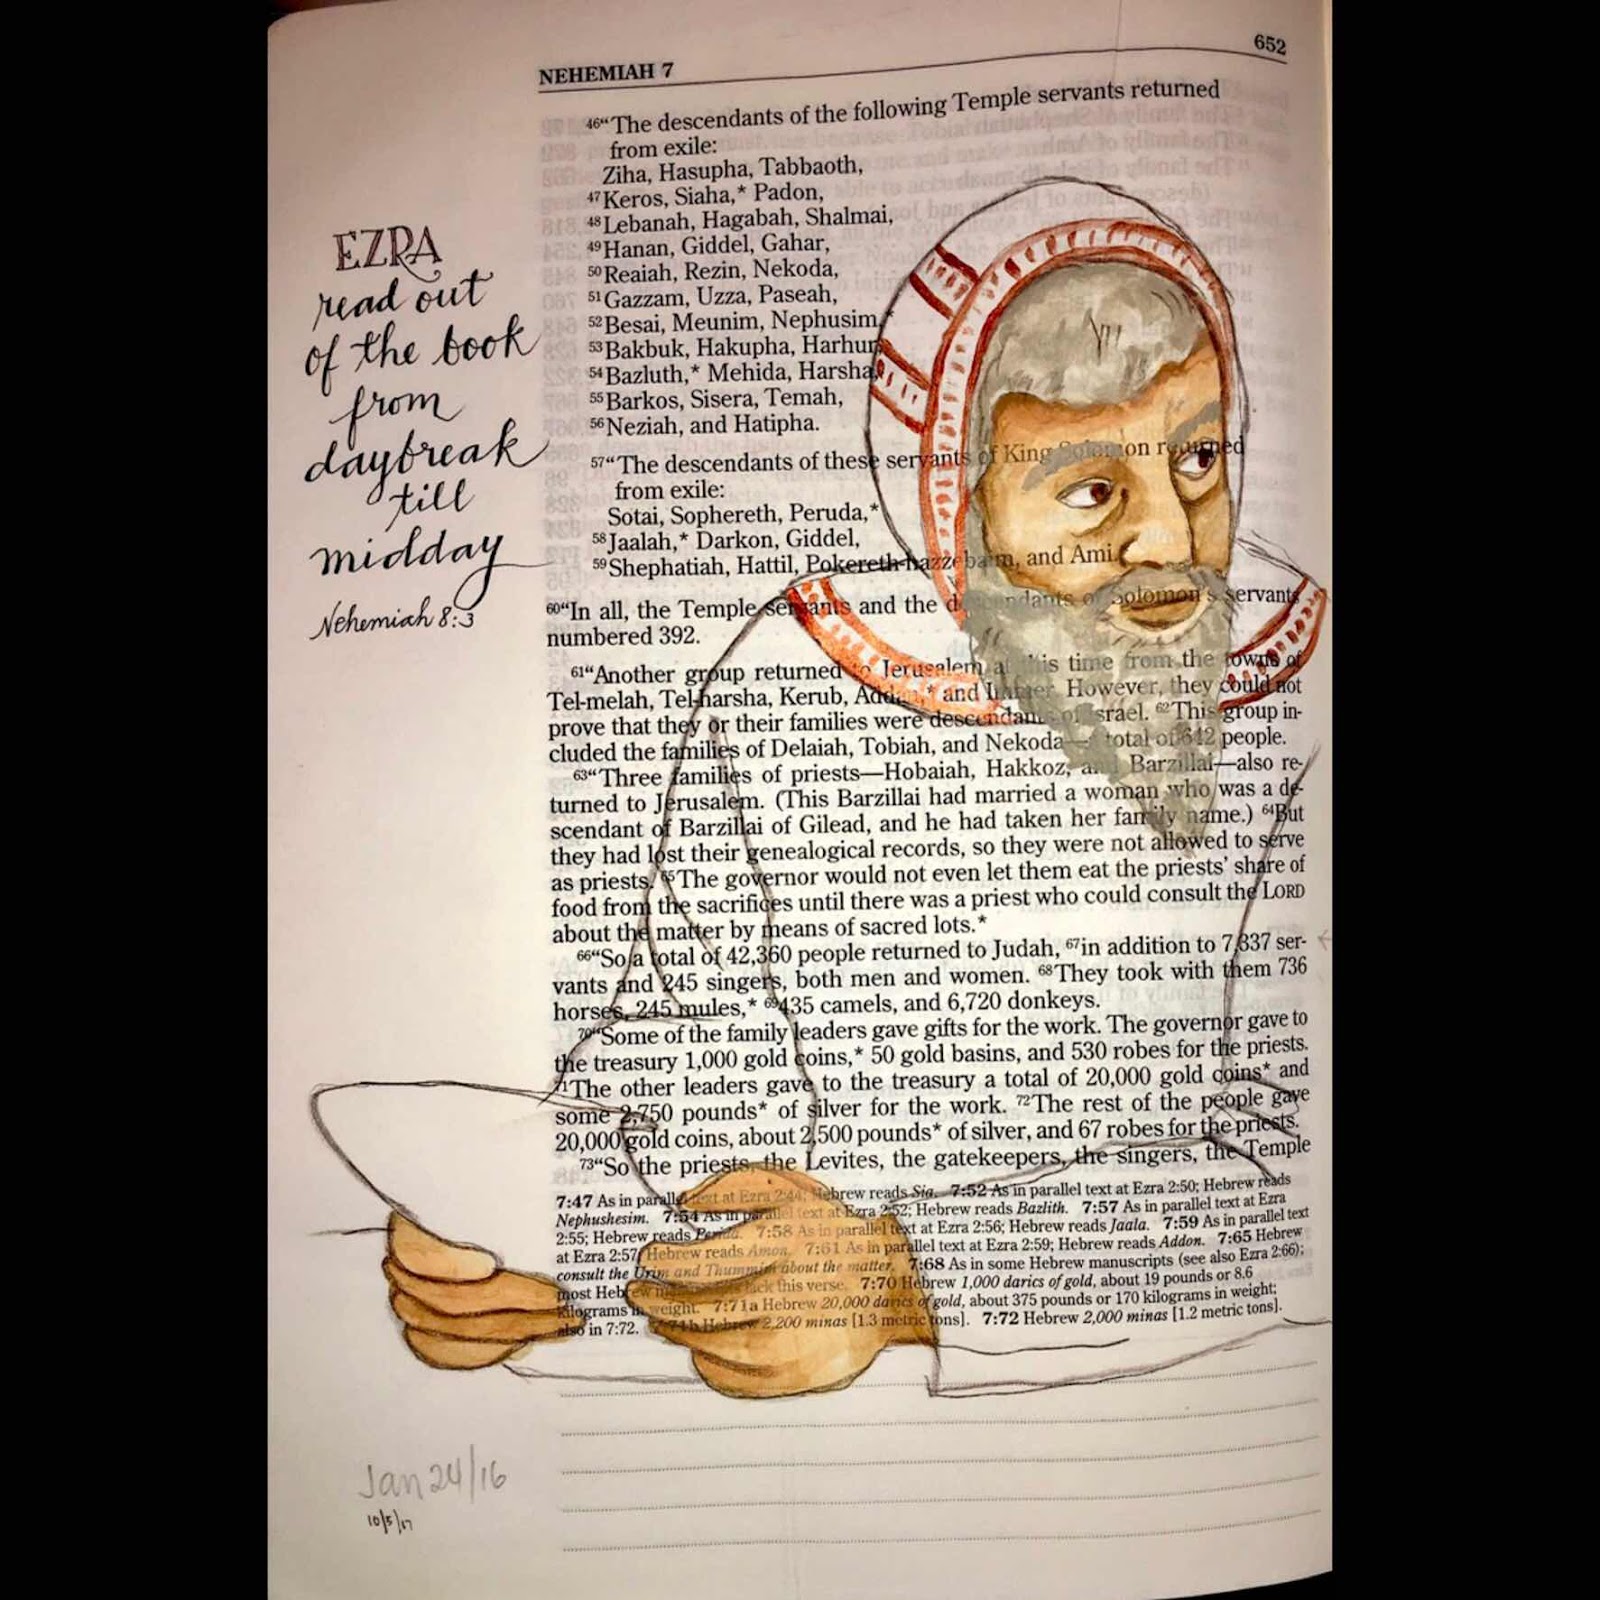 NEHEMIAH 7
652
EZRA
read out
of the book
from
daybreak
till
midday
Nehemiah 8:3
46“The descendants of the following Temple servants returned
from exile:
Ziha, Hasupha, Tabbaoth,
47Keros, Siaha,* Padon,
48Lebanah, Hagabah, Shalmai,
49Hanan, Giddel, Gahar,
50Reaiah, Rezin, Nekoda,
51Gazzam, Uzza, Paseah,
52Besai, Meunim, Nephusim,*
53Bakbuk, Hakupha, Harhur,
54Bazluth,* Mehida, Harsha,
55Barkos, Sisera, Temah,
56Neziah, and Hatipha.
57“The descendants of these servants of King Solomon returned
from exile:
Sotai, Sophereth, Peruda,*
58Jaalah,* Darkon, Giddel,
59Shephatiah, Hattil, Pokereth-hazzebaim, and Ami.
60“In all, the Temple servants and the descendants of Solomon’s servants
numbered 392.
61“Another group returned to Jerusalem at this time from the towns of
Tel-melah, Tel-harsha, Kerub, Addan,* and Immer. However, they could not
prove that they or their families were descendants of Israel. 62This group in-
cluded the families of Delaiah, Tobiah, and Nekoda—a total of 642 people.
63“Three families of priests—Hobaiah, Hakkoz, and Barzillai—also re-
turned to Jerusalem. (This Barzillai had married a woman who was a de-
scendant of Barzillai of Gilead, and he had taken her family name.) 64But
they had lost their genealogical records, so they were not allowed to serve
as priests. 65The governor would not even let them eat the priests’ share of
food from the sacrifices until there was a priest who could consult the LORD
about the matter by means of sacred lots.*
66“So a total of 42,360 people returned to Judah, 67in addition to 7,337 ser-
vants and 245 singers, both men and women. 68They took with them 736
horses, 245 mules,* 69435 camels, and 6,720 donkeys.
70“Some of the family leaders gave gifts for the work. The governor gave to
the treasury 1,000 gold coins,* 50 gold basins, and 530 robes for the priests.
71The other leaders gave to the treasury a total of 20,000 gold coins* and
some 2,750 pounds* of silver for the work. 72The rest of the people gave
20,000 gold coins, about 2,500 pounds* of silver, and 67 robes for the priests.
73“So the priests, the Levites, the gatekeepers, the singers, the Temple
7:47 As in parallel text at Ezra 2:44; Hebrew reads Sia. 7:52 As in parallel text at Ezra 2:50; Hebrew reads
Nephushesim. 7:54 As in parallel text at Ezra 2:52; Hebrew reads Bazlith. 7:57 As in parallel text at Ezra
2:55; Hebrew reads Perida. 7:58 As in parallel text at Ezra 2:56; Hebrew reads Jaala. 7:59 As in parallel text
at Ezra 2:57; Hebrew reads Amon. 7:61 As in parallel text at Ezra 2:59; Hebrew reads Addon. 7:65 Hebrew
consult the Urim and Thummim about the matter. 7:68 As in some Hebrew manuscripts (see also Ezra 2:66);
most Hebrew manuscripts lack this verse. 7:70 Hebrew 1,000 darics of gold, about 19 pounds or 8.6
kilograms in weight. 7:71a Hebrew 20,000 darics of gold, about 375 pounds or 170 kilograms in weight;
also in 7:72. 7:71b Hebrew 2,200 minas [1.3 metric tons]. 7:72 Hebrew 2,000 minas [1.2 metric tons].
Jan 24/16
10/5/17